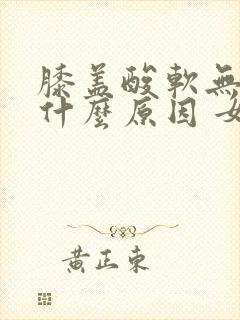 膝盖酸軟無
什麼原因 女
黄正東